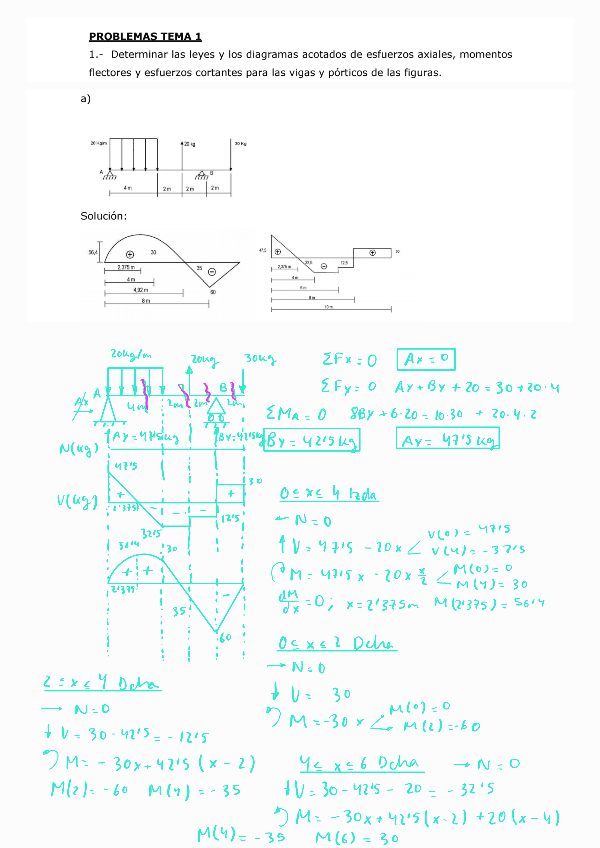 PROBLEMAS TEMA 1
1.- Determinar las leyes y los diagramas acotados de esfuerzos axiales, momentos
flectores y esfuerzos cortantes para las vigas y pórticos de las figuras.
a)
20 Kg/m
20 kg
30 Kg
A
B
4 m
2 m
2 m
2 m
Solución:
56,4
30
35
60
2,375 m
4 m
4,92 m
8 m
47,5
12,5
2,375 m
4 m
8 m
10 m
20kg/m
20kg
30kg
A
B
Ax
4m
2m
2m
2m
Ay=47'5kg
By=42'5kg
N(kg)
V(kg)
47'5
2'375
32'5
12'5
30
56'4
30
2'375
35
60
ΣFx=0 Ax=0
ΣFy=0 Ay+By+20=30+20·4
ΣMA=0 8By+6·20=10·30+20·4·2
By=42'5kg Ay=47'5kg
0≤x≤4 Izda
← N=0
↑V=47'5-20x V(0)=47'5
V(4)=-32'5
M=47'5x-20x x/2 M(0)=0
M(4)=30
dM/dx=0; x=2'375m M(2'375)=56'4
0≤x≤2 Dcha
→ N=0
↓V= 30
M=-30x M(0)=0
M(2)=-60
2≤x≤4 Dcha
→ N=0
↓V=30-42'5=-12'5
M=-30x+42'5(x-2)
M(2)=-60 M(4)=-35
4≤x≤6 Dcha → N=0
↓V=30-42'5-20=-32'5
M=-30x+42'5(x-2)+20(x-4)
M(4)=-35 M(6)=30